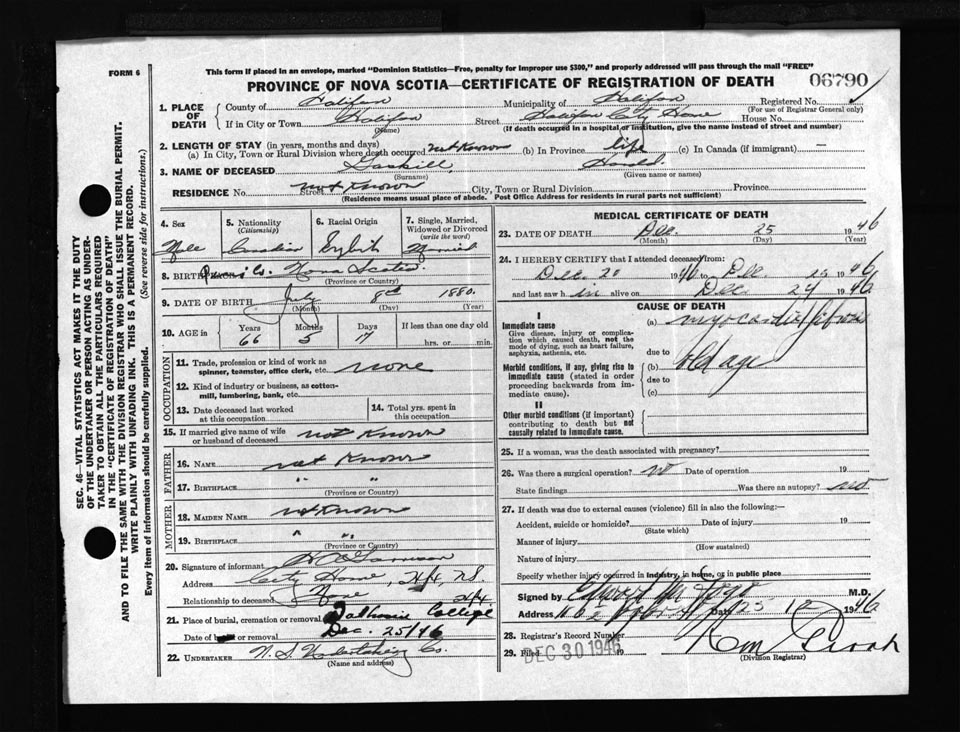 FORM 6
This form if placed in an envelope, marked "Dominion Statistics—Free, penalty for improper use $300," and properly addressed will pass through the mail "FREE"
PROVINCE OF NOVA SCOTIA—CERTIFICATE OF REGISTRATION OF DEATH
06790
1. PLACE OF DEATH
County of Halifax Municipality of Halifax Registered No.
(For use of Registrar General only)
If in City or Town Halifax Street Halifax City Home House No.
(Name) (If death occurred in a hospital or institution, give the name instead of street and number)
2. LENGTH OF STAY (in years, months and days)
(a) In City, Town or Rural Division where death occurred not Known (b) In Province life (c) In Canada (if immigrant) —
3. NAME OF DECEASED Gaskill, Harold
(Surname) (Given name or names)
RESIDENCE No. Street not Known City, Town or Rural Division Province
(Residence means usual place of abode. Post Office Address for residents in rural parts not sufficient)
4. Sex Male
5. Nationality (Citizenship) Canadian
6. Racial Origin English
7. Single, Married, Widowed or Divorced (write the word) Married
8. BIRTHPLACE Nova Scotia
(Province or Country)
9. DATE OF BIRTH July 8th 1880.
(Month) (Day) (Year)
10. AGE in Years 66 Months 5 Days 17 If less than one day old hrs. or min.
OCCUPATION
11. Trade, profession or kind of work as spinner, teamster, office clerk, etc. none
12. Kind of industry or business, as cotton-mill, lumbering, bank, etc.
13. Date deceased last worked at this occupation
14. Total yrs. spent in this occupation
15. If married give name of wife or husband of deceased not Known
FATHER
16. NAME not Known
17. BIRTHPLACE " "
(Province or Country)
MOTHER
18. MAIDEN NAME not Known
19. BIRTHPLACE " "
(Province or Country)
20. Signature of informant
Address City Home, Hfx N.S.
Relationship to deceased None
21. Place of burial, cremation or removal Dalhousie College Hfx
Date of burial or removal Dec. 25/46
22. UNDERTAKER N. S. Undertaking Co.
(Name and address)
MEDICAL CERTIFICATE OF DEATH
23. DATE OF DEATH Dec. 25 1946
(Month) (Day) (Year)
24. I HEREBY CERTIFY that I attended deceased from:
Dec 20 1946 to Dec 25 1946
and last saw h im alive on Dec. 24 1946
CAUSE OF DEATH
I
Immediate cause
Give disease, injury or complication which caused death, not the mode of dying, such as heart failure, asphyxia, asthenia, etc.
(a) myocardial fibrosis
due to
Morbid conditions, if any, giving rise to immediate cause (stated in order proceeding backwards from immediate cause).
(b) old age
due to
(c)
II
Other morbid conditions (if important) contributing to death but not causally related to immediate cause.
25. If a woman, was the death associated with pregnancy?
26. Was there a surgical operation? no Date of operation 19
State findings Was there an autopsy? no
27. If death was due to external causes (violence) fill in also the following:—
Accident, suicide or homicide? Date of injury 19
(State which)
Manner of injury
(How sustained)
Nature of injury
Specify whether injury occurred in industry, in home, or in public place
Signed by M.D.
Address Date 25 12 1946
28. Registrar's Record Number
29. Filed DEC 30 1946 19
(Division Registrar)
SEC. 46—VITAL STATISTICS ACT MAKES IT THE DUTY
OF THE UNDERTAKER OR PERSON ACTING AS UNDER-
TAKER TO OBTAIN ALL THE PARTICULARS REQUIRED
IN THE "CERTIFICATE OF REGISTRATION OF DEATH"
AND TO FILE THE SAME WITH THE DIVISION REGISTRAR WHO SHALL ISSUE THE BURIAL PERMIT.
WRITE PLAINLY WITH UNFADING INK. THIS IS A PERMANENT RECORD.
Every item of information should be carefully supplied. (See reverse side for instructions.)